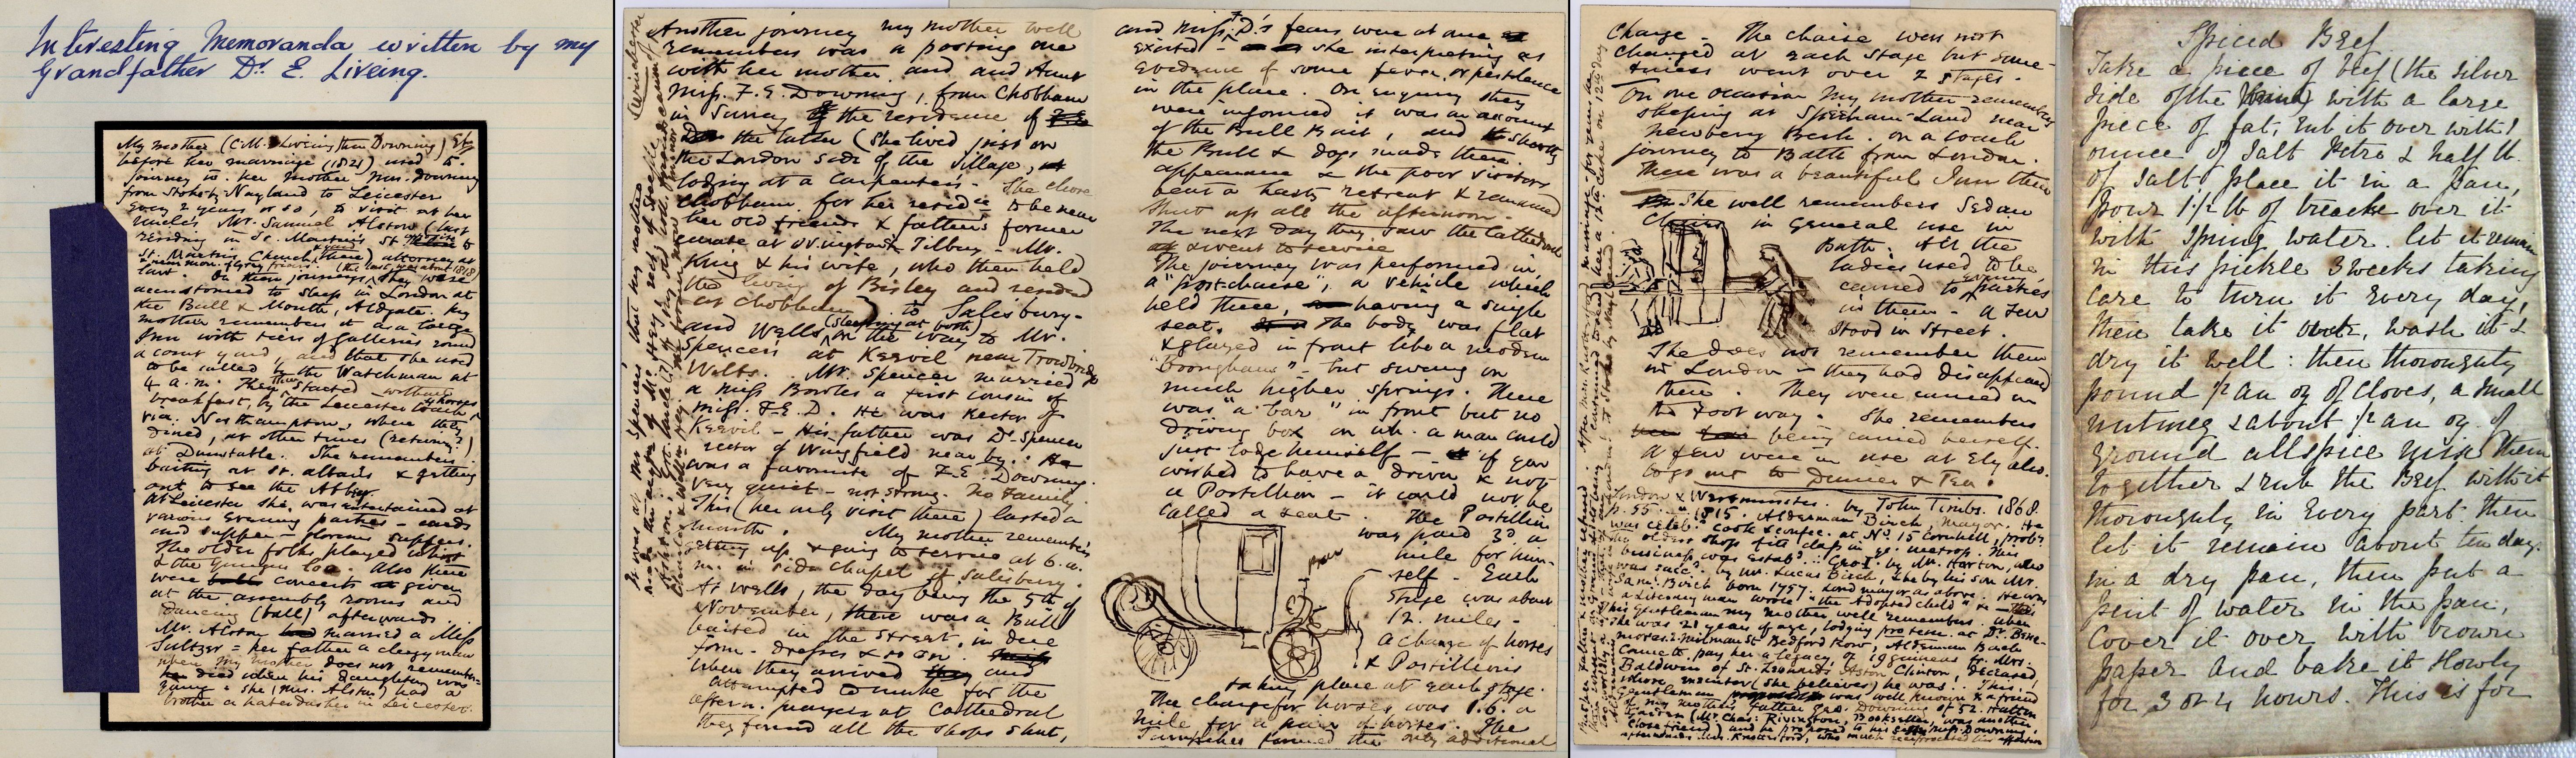 Interesting Memoranda written by my
Grandfather Dr. E. Liveing.
My mother (C.M. Liveing then Downing)
before her marriage (1821) used to
journey to her mother Mrs. Downing
from Stoke by Nayland to Leicester
every 2 years or so, to visit at her
uncle's Mr. Samuel Alston (last
residing in St. Martin's St.
St. Martins Church there) attorney at
law. On these journeys they were
accustomed to sleep in London at
the Bull & Mouth, Aldgate. My
mother remembers it as a large
Inn with tiers of galleries round
a court yard, and that she used
to be called by the Watchman at
4 a.m. They then started without
breakfast, by the Leicester Coach, 4 horses
via. Northampton, where they
dined, or at other times (returning?)
at Dunstable. She remembers
baiting at St. Albans & getting
out to see the Abbey.
At Leicester she was entertained at
various Evening parties – cards
and supper – glorious suppers.
The older folks played whist
& the younger loo. Also there
were concerts given
at the assembly rooms and
dancing (ball) afterwards.
Mr. Alston married a Miss
Sultzer = her father a clergyman
when my mother does not remember
died when his daughter was
young = she (Mrs. Alston) had a
brother a haberdasher in Leicester.
Another journey my mother well
remembers was a posting one
with her mother and and Aunt
Miss. F.E. Downing, from Chobham
in Surrey the residence of
the latter (she lived just on
the London side of the village,
lodging at a carpenter's – She chose
Chobham for her residce to be near
her old friends & father's former
curate at Ovington & Tilbury – Mr.
King & his wife, who then held
the living of Bisley and resided
at Chobham) to Salisbury –
and Wells (sleeping at both) on the way to Mr.
Spencer's at Keevil near Trowbridge
Wilts. Mr. Spencer married
a Miss Bowles a first cousin of
Miss. F.E.D. He was Rector of
Keevil – His father was Dr. Spencer
rector of Wingfield near by. He
was a favourite of F.E. Downing.
very quiet – not strong. No family.
This (her only visit there) lasted a
month. My mother remembers
getting up & going to service at 6. a.
m. in side chapel of Salisbury.
At Wells, the day being the 5th of
November, there was a Bull
baited in the Street, in due
form – dresses & so on.
When they arrived and
attempted to make for the
aftern. prayers at Cathedral
they found all the shops shut,
and Miss D.'s fears were at once
excited – she interpreting as
evidence of some fever, or pestilence
in the place. On enquiry they
were informed it was on account
of the Bull Bait, and shortly
the Bull & dogs made their
appearance & the poor visitors
beat a hasty retreat & remained
shut up all the afternoon.
The next day they saw the Cathedral
& went to service
The journey was performed in
a "post-chaise", a vehicle which
held three, having a single
seat. The body was flat
& glazed in front like a modern
"Broogham" – but swung on
much higher springs. There
was "a bar" in front but no
driving box on wh. a man could
just lodge himself – if you
wished to have a driver & not
a Postillion – it could not be
called a seat. The Postillion
was paid 3d a
mile for him-
self – Each
Stage was about
12. miles –
A change of horses
& Postillions
taking place at each stage.
bar
The charge for horses was 1.6. a
mile for a pair of horses. The
Turnpikes formed the only additional
Charge – The chaise was not
changed at each Stage but some-
times went over 2 stages.
On one occasion my mother remembers
sleeping at Speenham-Land near
Newbery Berks. on a coach
journey to Bath from London.
There was a beautiful Inn there
She well remembers Sedan
Chairs in general use in
Bath. All the
ladies used to be
carried to evening parties
in them – a few
stood in street.
She does not remember them
in London – they had disappeared
then. They were carried on
the Foot way. She remembers
being carried herself.
A few were in use at Ely also.
to go out to Dinner & Tea.
London & Westminster. by John Timbs. 1868.
p. 55. 1815. Alderman Birch, Mayor. He
was celebd. cook & confec. at No. 15 Cornhill, probly
the oldest shop of its class in ye metrop. This
business was estabd. Geo I by Mr. Horton, who
was succd. by Mr. Lucas Birch, & he by his son Mr.
Saml. Birch born 1757. Lord mayor as above. He was
a Literary man wrote "the Adopted child" &c
This gentleman my mother well remembers. when
she was 21 years of age, lodging pro tem. at Dr.
Milman St Bedford Row, Alderman Birch
came to pay her a legacy, of 19 guineas fr. Mrs.
Baldwin of St. Leonards Aston Clinton, deceased,
whose executor (she believes) he was. This
gentleman was well known & a friend
of my mother's father Geo. Downing of 52. Hatton
Garden (Mr. Chas: Rivington, Bookseller, was another
close friend) and he proposed to his sister Miss Downing,
Spiced Beef
Take a piece of beef (the silver
side of the round) with a large
piece of fat, rub it over with 1
ounce of Salt Petre & half lb
of Salt, place it in a pan,
pour 1 1/2 lb of treacle over it
with Spring water. let it remain
in this pickle 3 weeks taking
care to turn it every day,
then take it out, wash it &
dry it well. then thoroughly
pound 1/2 an oz of Cloves, a small
nutmeg & about 1/2 an oz. of
ground allspice mix them
together & rub the Beef with it
thoroughly in every part. then
let it remain about ten days
in a dry pan, then put a
pint of water in the pan,
Cover it over with brown
paper and bake it slowly
for 3 or 4 hours. This is for